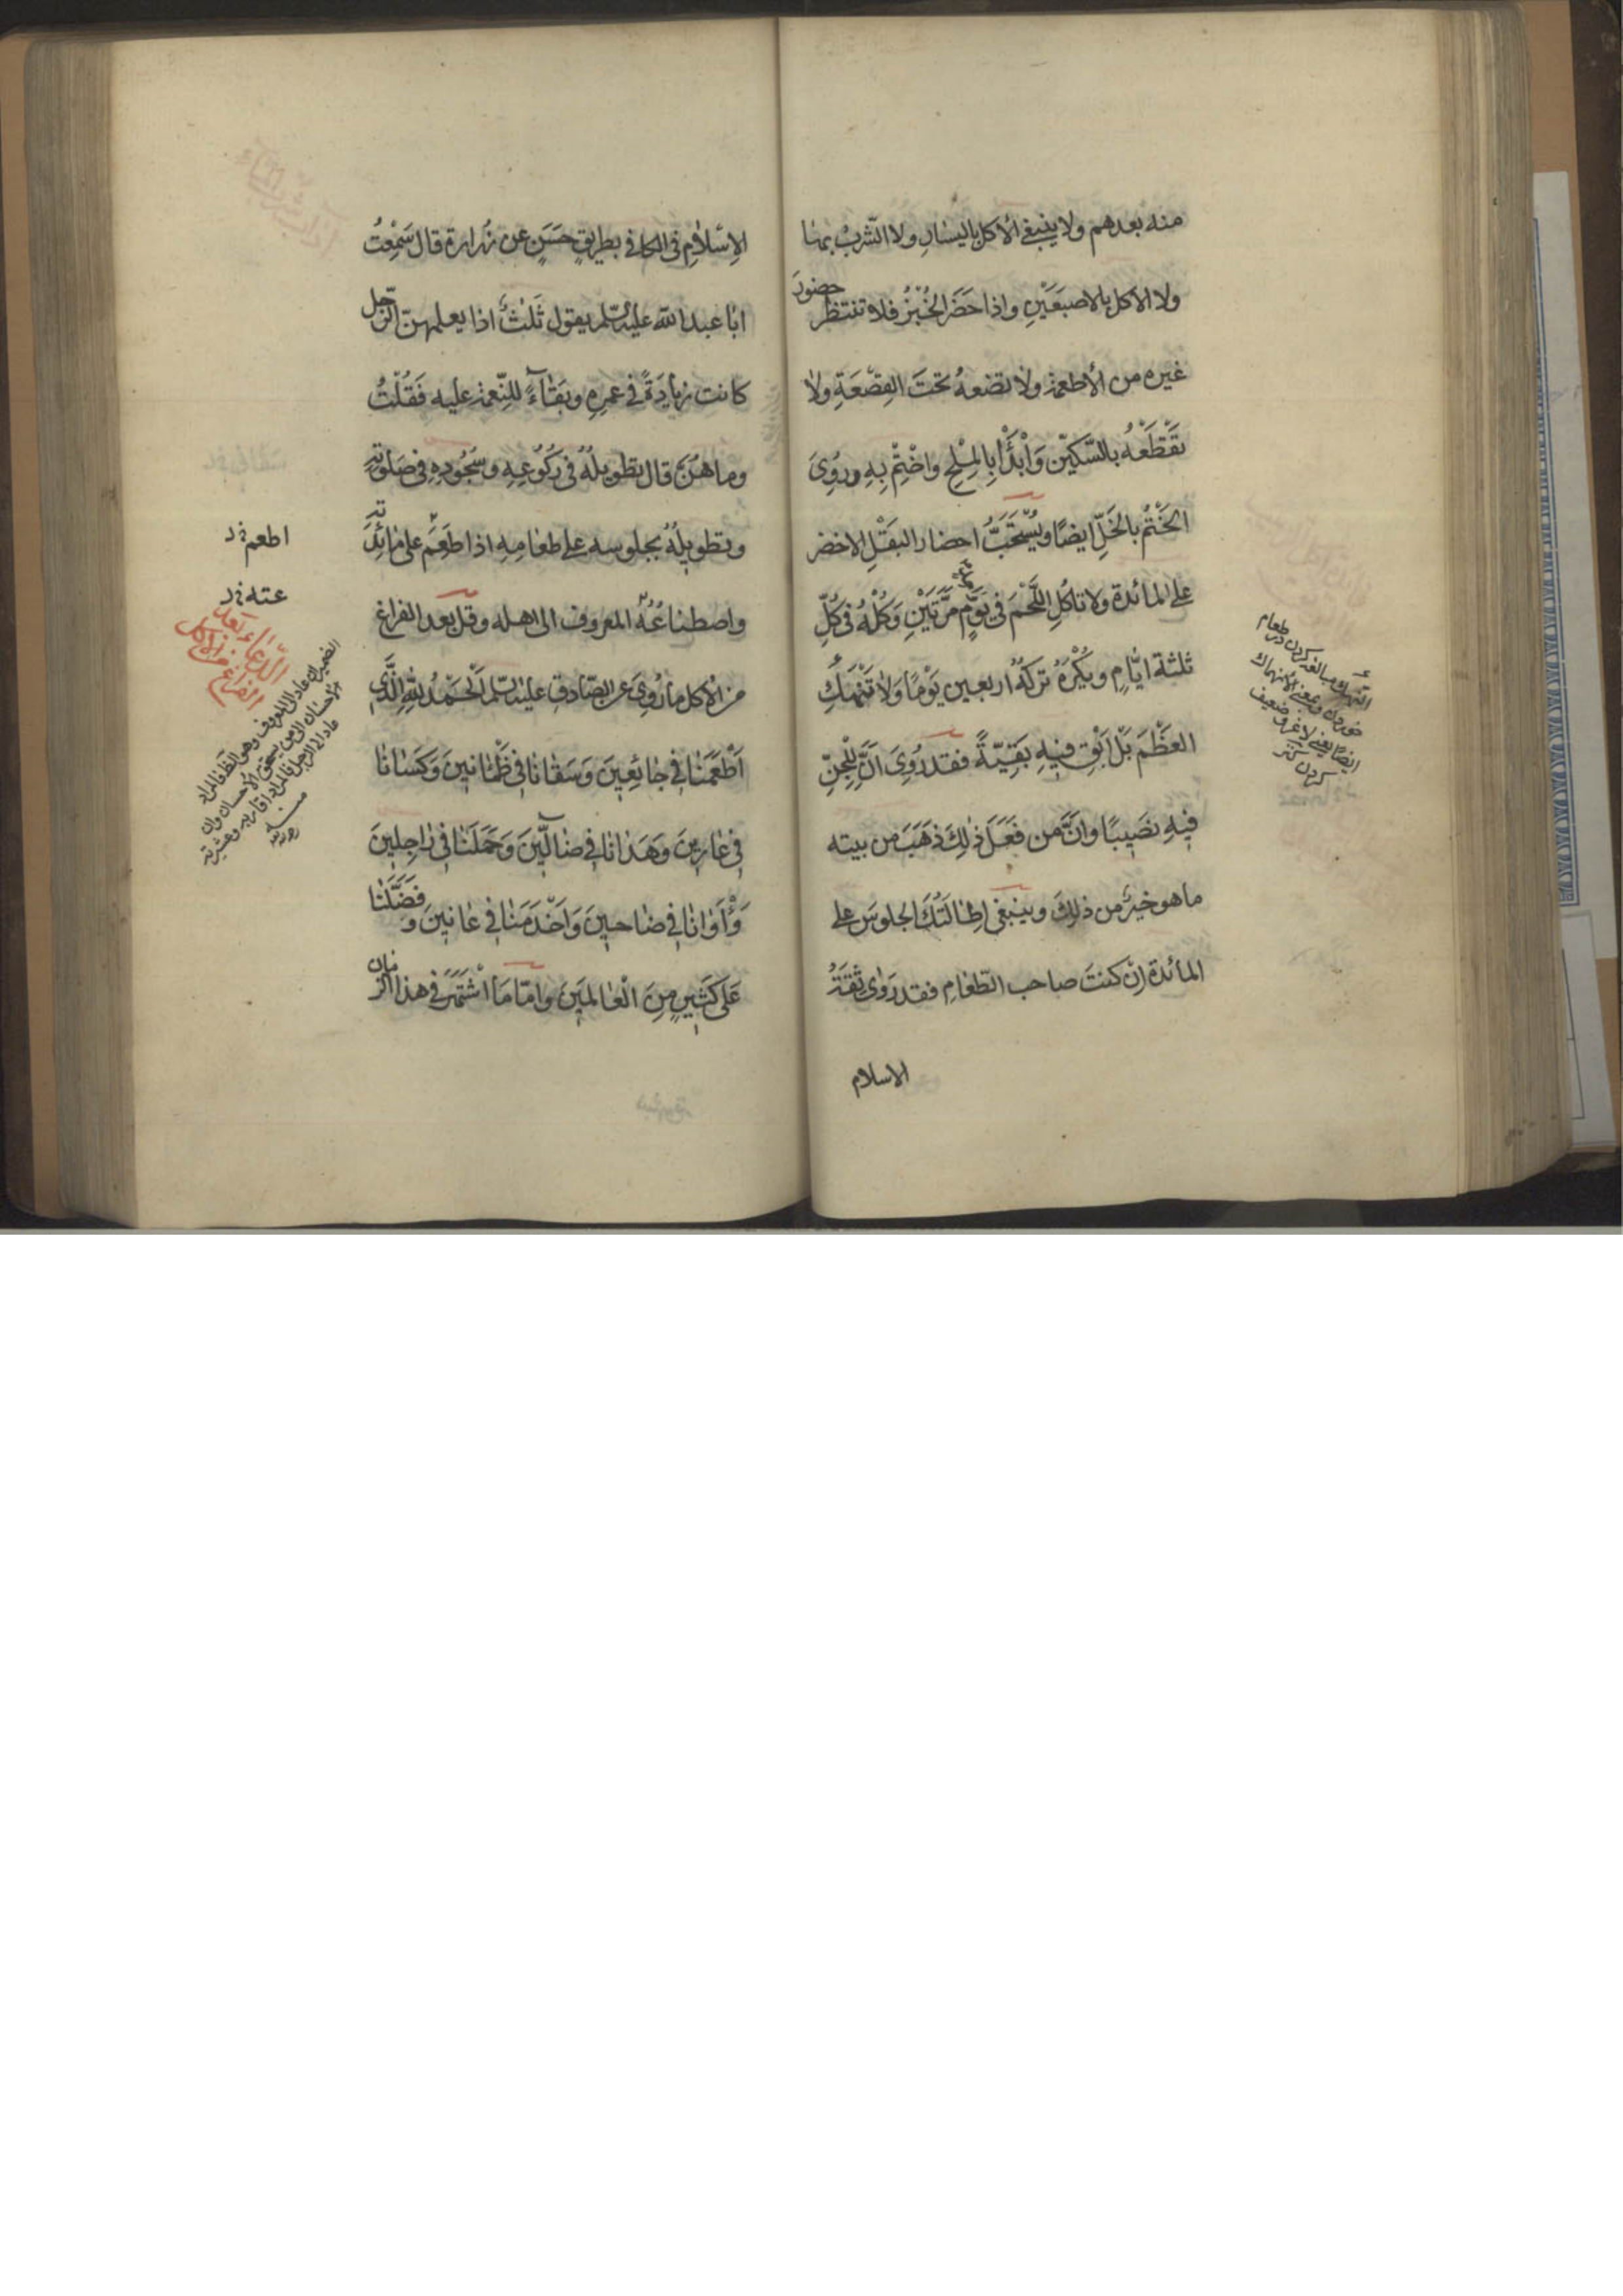 منه بعدهم ولا ينبغى الأكل باليسارِ ولا الشّربُ بها
ولا الأكل بالاصبَعَيْنِ واذا حَضَرَ الخُبْزُ فلا تنتظر حضورَ
غيره من الأطعمة ولا تضعهُ تحتَ القِصْعَةِ ولا
تقْطَعْهُ بالسّكّينِ وَابْدَأْ بِالمِلْحِ واخْتِمْ بِهِ ورُوِىَ
الخَتْمُ بالخَلِّ ايضًا ويُسْتَحَبُّ احضار البَقْلِ الاخضر
على المائدة ولا تاكُلِ اللَّحْمَ فى يَوْمٍ مَرَّتَيْنِ وَكُلْهُ فى كُلِّ
ثلثة ايّامٍ ويُكْرَهُ تركهُ اربعين يَوْمًا وَلا تَنْهَكِ
العَظْمَ بَلْ اَبْقِ فيهِ بَقيّةً فقد رُوِىَ اَنَّ لِلْجِنِّ
فيهِ نصَيبًا وانَّ من فَعَلَ ذٰلِكَ ذَهَبَ من بيته
ما هو خيرٌ من ذلِكَ وينبغى اِطالَتُكَ الجلوسَ على
المائدة اِنْ كنتَ صاحب الطّعامِ فقد رَوٰى ثِقَةُ
الاسلام
الاِسْلامِ فى الكافى بطريقٍ حَسَنٍ عن زُرارة قال سَمِعْتُ
ابا عبد الله عليه السّلم يقول ثَلٰثٌ اذا يعلمهنّ الرّجل
كانت زيادَةً فى عمرِهِ وبَقاءً للنِّعمة عليه فَقُلْتُ
وما هُنَّ قال تطويلُهُ فى رُكُوعِهِ وسُجُودِهِ فى صَلوته
وتطويلُهُ لجلوسه على طعامِهِ اذا طَعِمَ على مائدته
واصطناعُهُ المعروف الى اهله وقل بعد الفراغ
من الأكل ما رُوِىَ عن الصّادقِ عليه السّلم اَلْحَمْدُ لِلّٰهِ الَّذى
اَطْعَمَنا فى جائِعينَ وَسَقانا فى ظَمْانينَ وَكَسانا
فى عارينَ وَهَدانا فى ضالّينَ وَحَمَلَنا فى راجِلينَ
وَاٰوانا فى ضاحينَ وَاَخْدَمَنا فى عانينَ وَفَضَّلَنا
عَلى كَثيرٍ مِنَ الْعالَمينَ وامّا ما اشْتَهَرَ فى هذا الزّمان
النّهك مبالغه كردن در طعام
خوردن وبمعنى الانهاك
ايضًا يعنى لاغر وضعيف
كردن كنز
اطعم خ‌د
عته خ‌د
الدّعاء بعد
الفراغ من الأكل
الضمير ان عاد الى المعروف وهو الظّ فالمراد
الاحسان الى من يستحق الاحسان وان
عاد الى الرجل فالمراد اقاربه وعشيرته